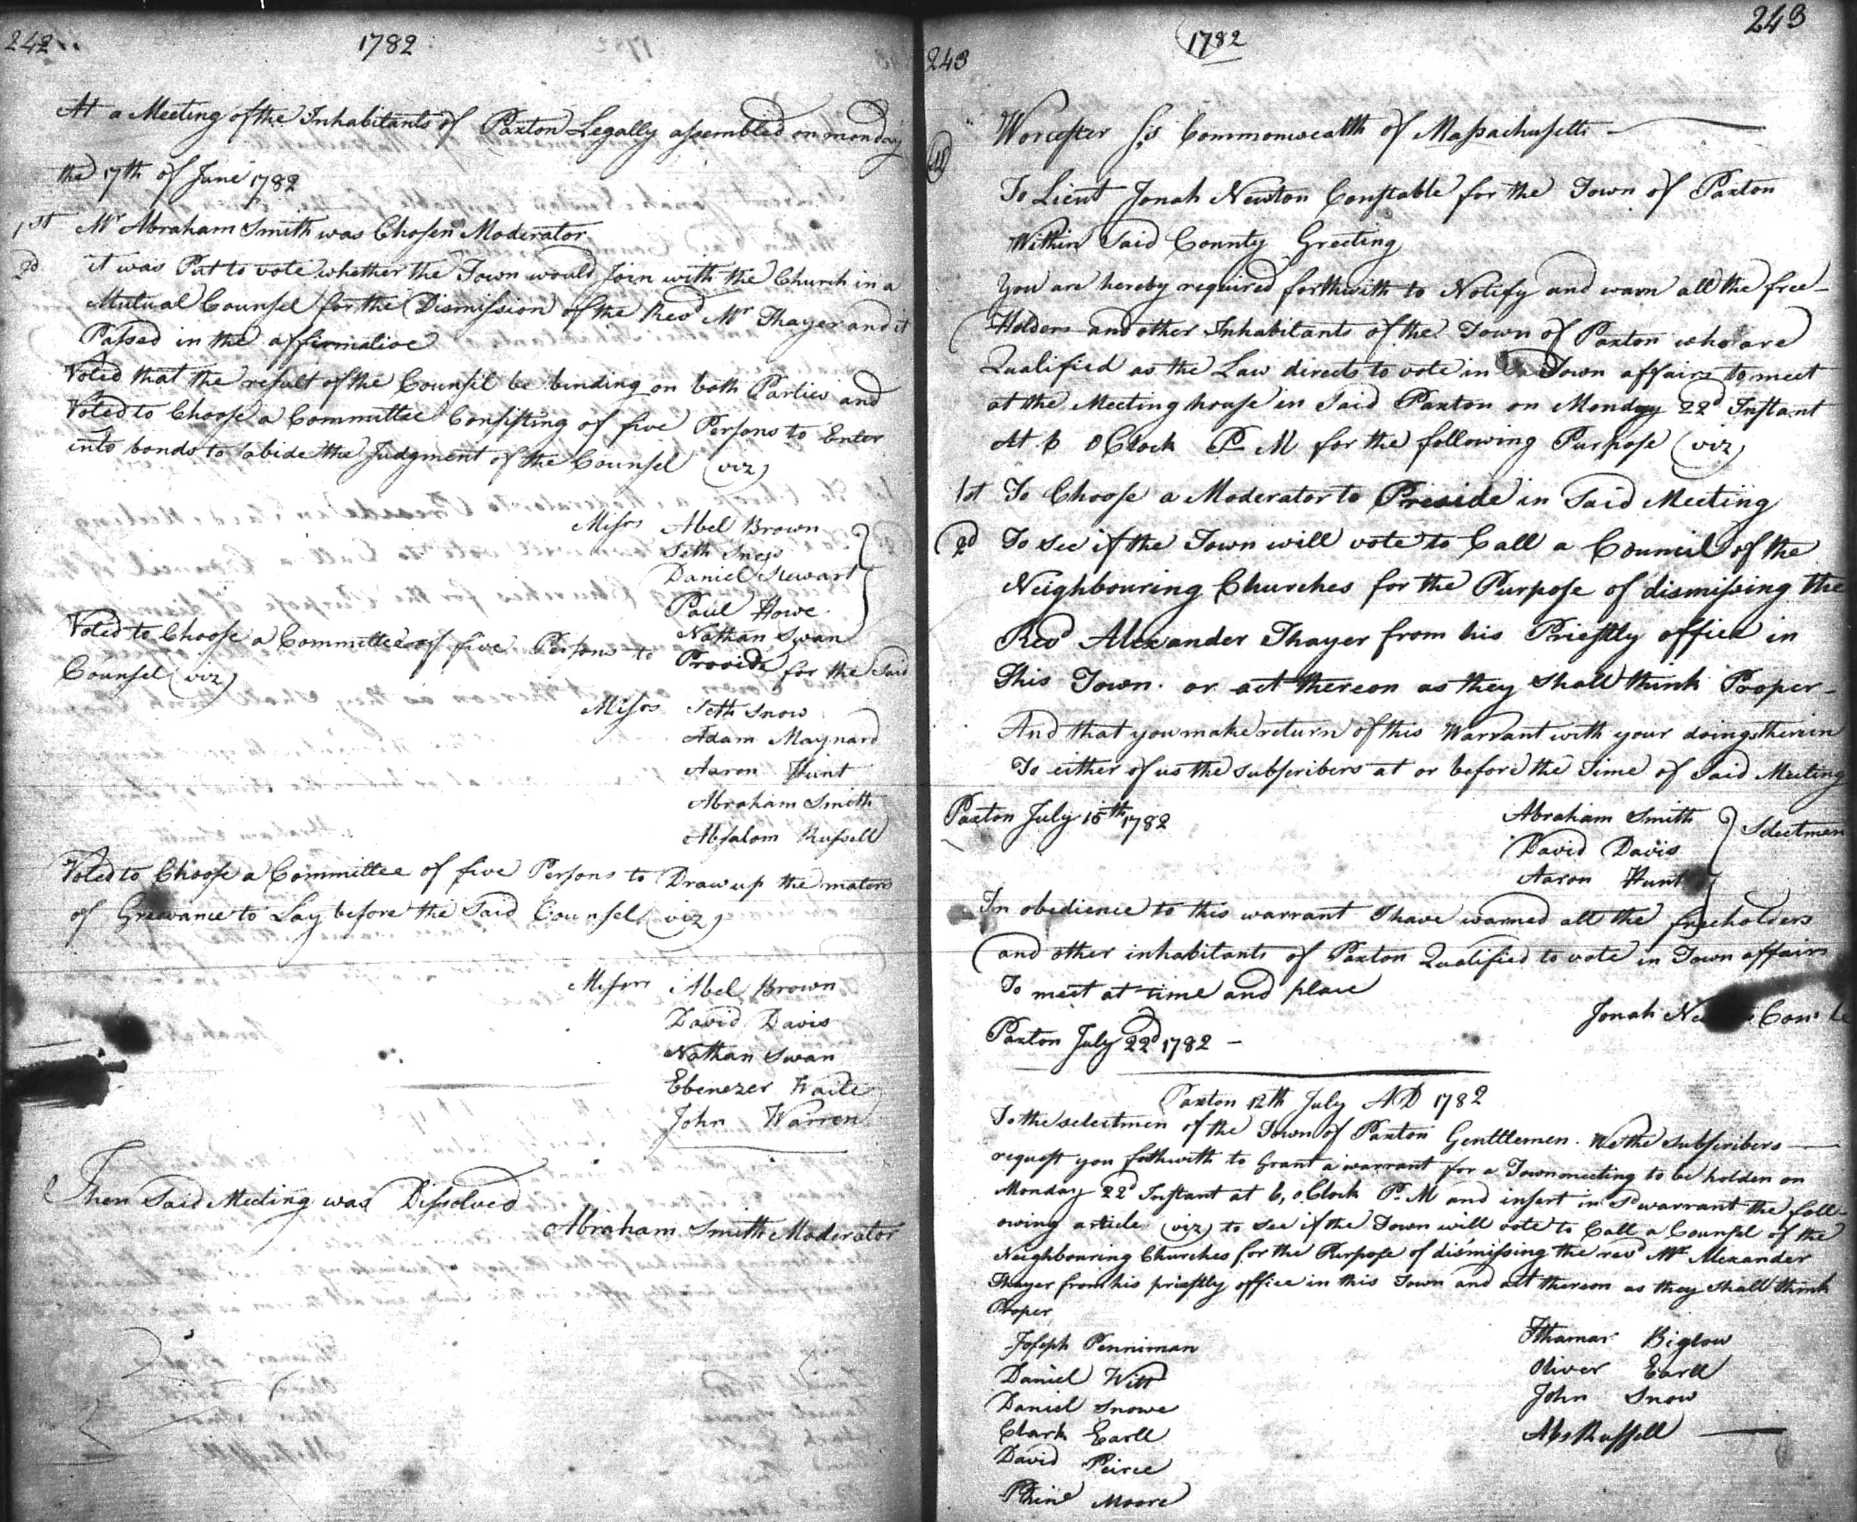 242
1782
At a Meeting of the Inhabitants of Paxton Legally assembled on monday
the 17th of June 1782
1st Mr Abraham Smith was Chosen Moderator
2d it was Put to vote whether the Town would Join with the Church in a
Mutual Counsel for the Dismission of the Revd Mr Thayer and it
Passed in the affirmative
Voted that the result of the Counsel be binding on both Parties and
Voted to Choose a Committee Consisting of five Persons to Enter
into bonds to abide the Judgment of the Counsel (viz)
Misrs Abel Brown
Seth Snow
Daniel Stewart
Paul Howe
Nathan Swan
Voted to Choose a Committee of five Persons to Provide for the Said
Counsel (viz)
Misrs Seth Snow
Adam Maynard
Aaron Hunt
Abraham Smith
Absalom Russell
Voted to Choose a Committee of five Persons to Draw up the maters
of Greavance to Lay before the Said Counsel (viz)
Misrs Abel Brown
David Davis
Nathan Swan
Ebenezer Waite
John Warren
Then Said Meeting was Dissolved
Abraham Smith Moderator
243
1782
243
Worcester Ss Commonwealth of Massachusetts
To Lieut Jonah Newton Constable for the Town of Paxton
Within Said County Greeting
You are hereby required forthwith to Notify and warn all the free-
Holders and other Inhabitants of the Town of Paxton who are
Qualified as the Law directs to vote in Town affairs to meet
at the Meeting house in Said Paxton on Monday 22d Instant
At 6 O Clock P M for the following Purpose (viz)
1st To Choose a Moderator to Preside in Said Meeting
2d To See if the Town will vote to Call a Council of the
Neighbouring Churches for the Purpose of dismissing the
Revd Alexander Thayer from his Priestly office in
This Town. or act thereon as they Shall think Proper-
And that you make return of this Warrant with your doings therein
To either of us the subscribers at or before the Time of Said Meeting
Paxton July 15th 1782
Abraham Smith
David Davis
Aaron Hunt
Selectmen
In obedience to this warrant I have warned all the freeholders
and other inhabitants of Paxton Qualified to vote in Town affairs
To meet at time and place
Jonah
Paxton July 22d 1782 -
Paxton 12th July AD 1782
To the selectmen of the Town of Paxton Genttlemen. We the subscribers
request you fothwith to Grant a warrant for a Town meeting to be holden on
Monday 22d Instant at 6, o,Clock P. M and insert in sd warrant the foll-
owing article (viz) to see if the Town will vote to Call a Counsel of the
Neighbouring Churches for the Purpose of dismissing the revd Mr Alexander
Thayer from his priestly office in this Town and act thereon as they Shall think
Proper
Joseph Penniman
Daniel Witt
Daniel Snowe
Clark Earll
David Peirce
Moore
Ithamar Biglow
Oliver Earll
John Snow
Abs Russell